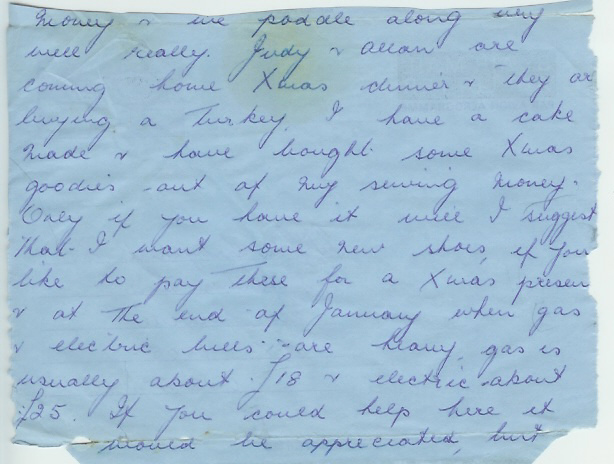 money & we paddle along very
well really. Judy & Allan are
coming home Xmas dinner & they are
buying a Turkey. I have a cake
made & have bought some Xmas
goodies out of my sewing money.
Only if you have it will I suggest
that I want some new shoes, if you
like to pay these for a Xmas presen
& at the end of January when gas
& electric bills are heavy, gas is
usually about £18 & electric about
£25. If you could help here it
would be appreciated, but